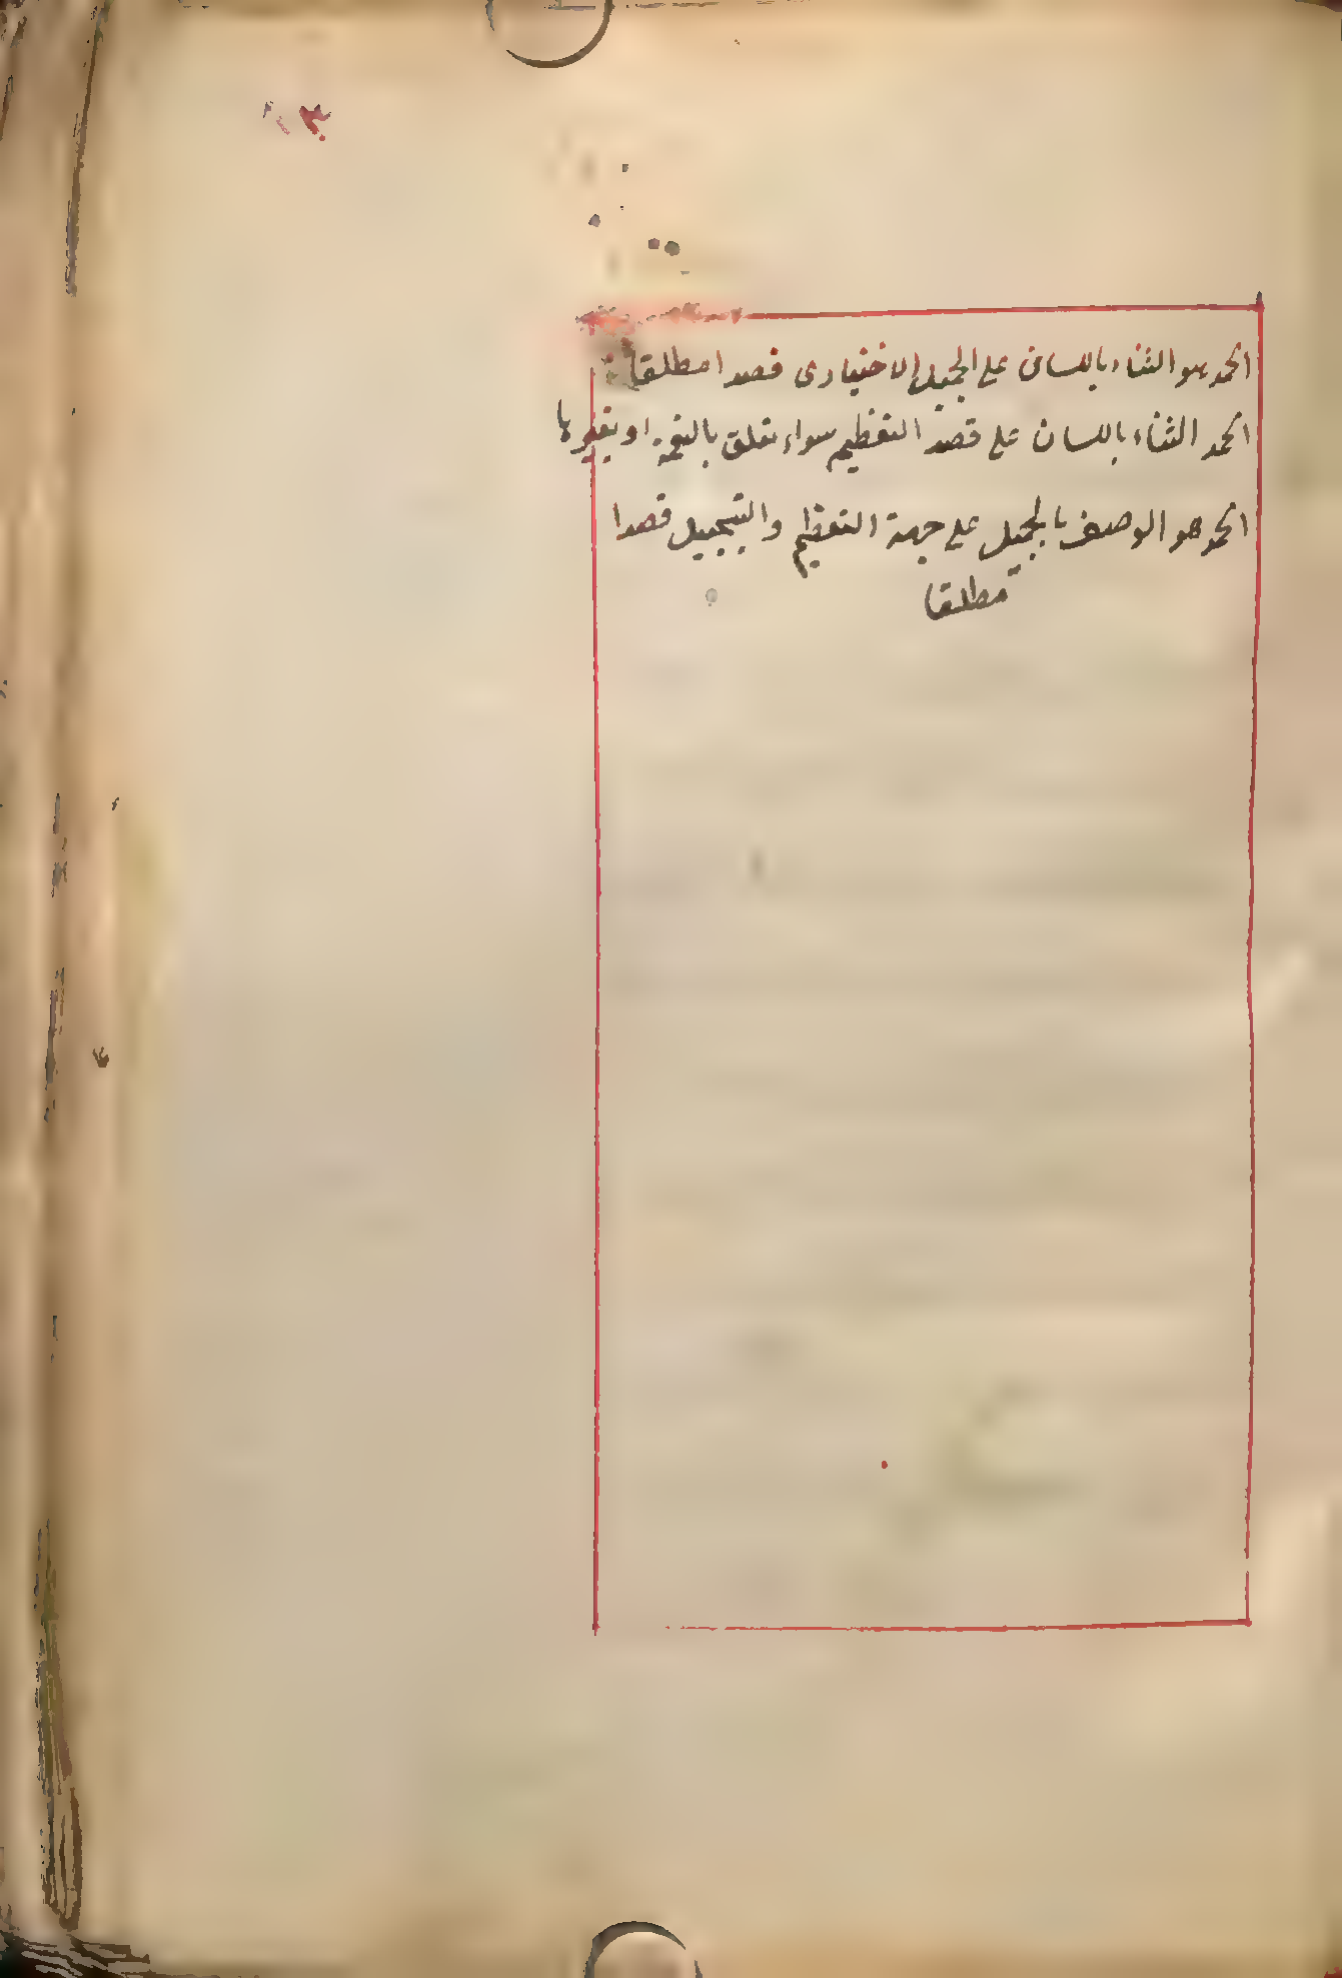 الحمد هو الثناء باللسان على الجميل الاختيارى قصدا مطلقا
الحمد الثناء باللسان على قصد التعظيم سواء تعلق بالنعمة او بغيرها
الحمد هو الوصف بالجميل على جهة التعظيم والتبجيل قصدا
مطلقا